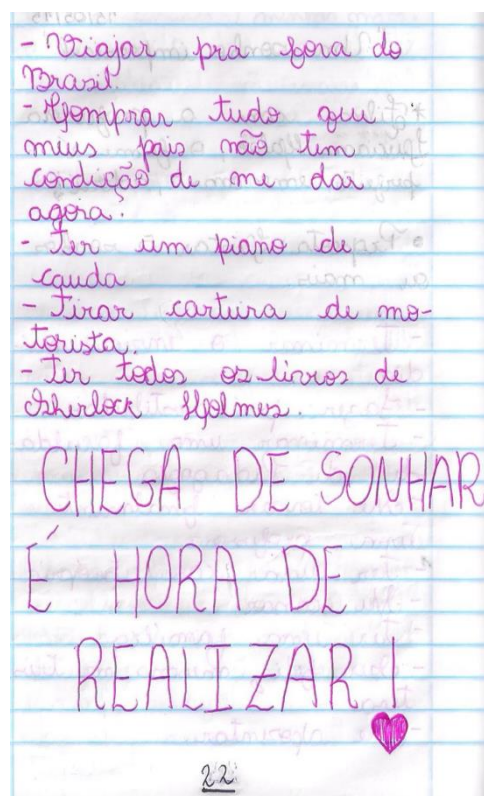 - Viajar pra fora do
Brasil.
- Comprar tudo que
meus pais não tem
condição de me dar
agora.
- Ter um piano de
cauda
- Tirar carteira de mo-
torista.
- Ter todos os livros de
Sherlock Holmes.
CHEGA DE SONHAR
É HORA DE
REALIZAR!
22